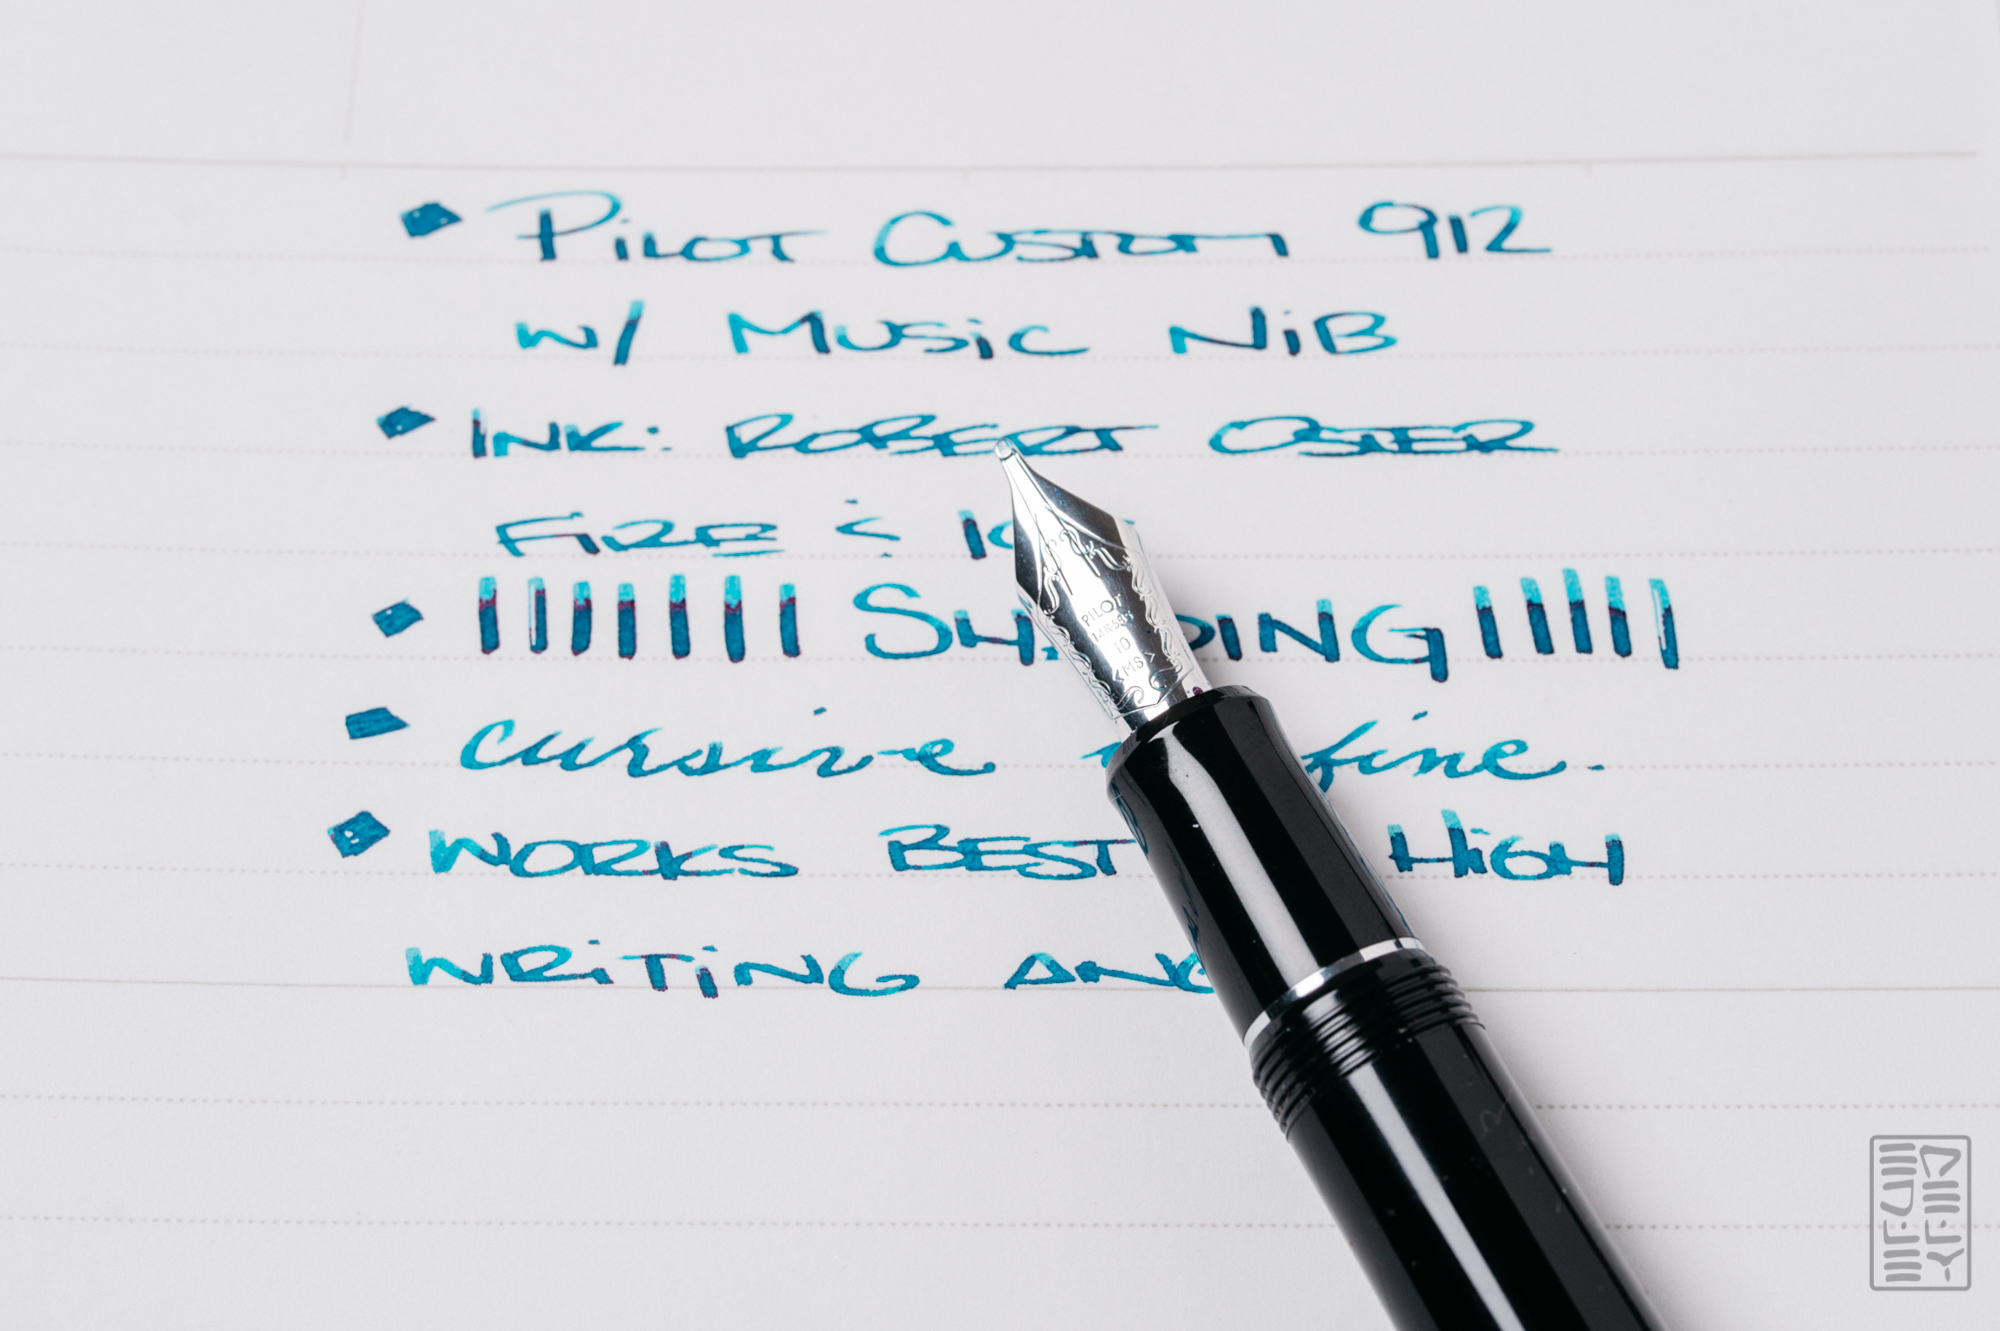 Pilot Custom 912
w/ Music Nib
Ink: Robert Oster
Fire &
Shading
cursive fine.
Works Best High
Writing
PILOT
14K585
10
<MS>